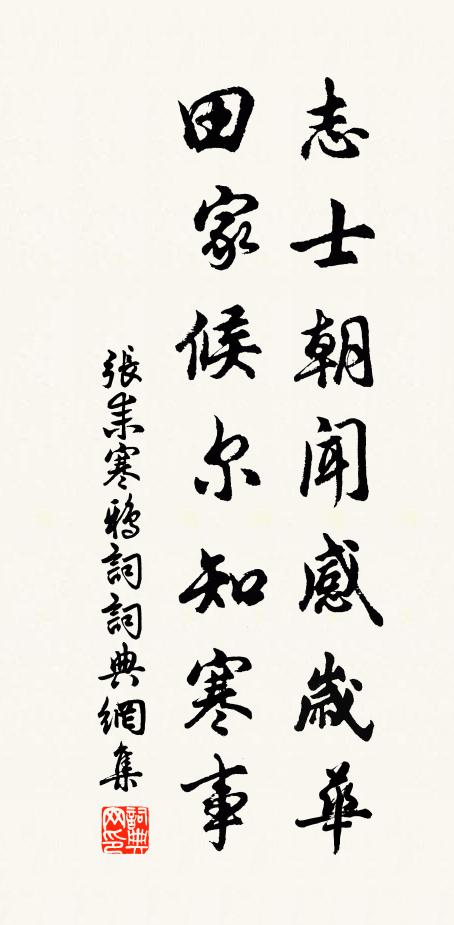 志士朝闻感歳華
田家候尔知寒事
張耒寒鴉詞詞典網集
詞典网印